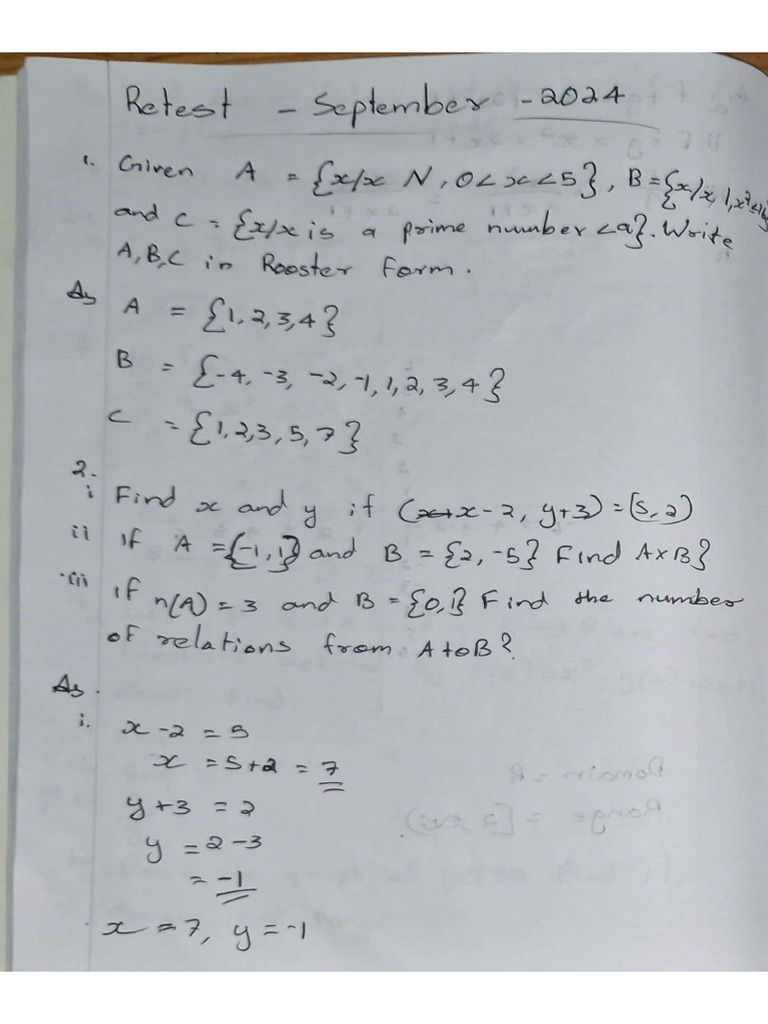 Retest - September - 2024
1. Given A = {x/x N, 0 < x < 5}, B = {x/x, 1, x²
and C = {x/x is a prime number < a}. Write
A, B, C in Rooster Form.
As A = {1, 2, 3, 4}
B = {-4, -3, -2, -1, 1, 2, 3, 4}
C = {1, 2, 3, 5, 7}
2.
i Find x and y if (x-2, y+3) = (5, 2)
ii If A = {-1, 1} and B = {2, -5} Find A×B}
iii If n(A) = 3 and B = {0, 1} Find the number
of relations from A to B?
As.
i. x - 2 = 5
x = 5 + 2 = 7
y + 3 = 2
y = 2 - 3
= -1
x = 7, y = -1